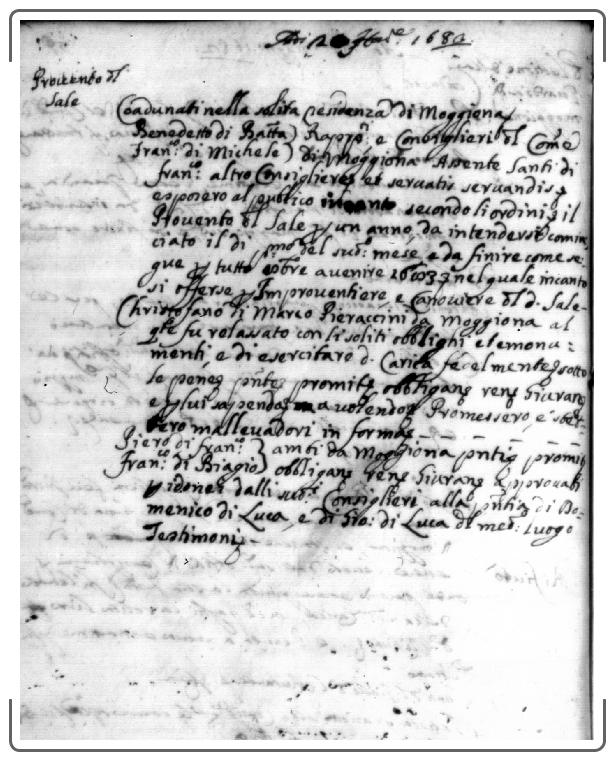 Adì 2 9bre 1682
Provento dl
Sale
Coadunati nella solita residenza di Moggiona
Benedetto di Batta Rappr. e Consiglieri dl Come
Franco di Michele di Moggiona Assente Santi di
Franco altro Consigliere et servatis servandis
esposero al publico incanto secondo li ordini il
Provento dl Sale p un anno da intendersi comin
ciato il dì pmo del sudo mese e da finire come se-
gue p tutto 8bre avenire nel quale incanto
si offerse p Improventiere e Canoviere dl d. Sale
Christofano di Marco Pieraccini da Moggiona al
qle fu rolassato con li soliti obblighi et emolu=
menti e di esercitare d. Carica fedelmente sotto
le pene promitt obbligans rens Giurans
e p lui Promessero
mallevadori in forma
Piero di Franco
Franco di Biagio ambi da Moggiona pnti promitt
obbligans rens Giurans approvati
p idonei dalli sudi Consiglieri alla pntia di Do-
menico di Luca e di Gio: di Luca di med: Luogo
Testimoni